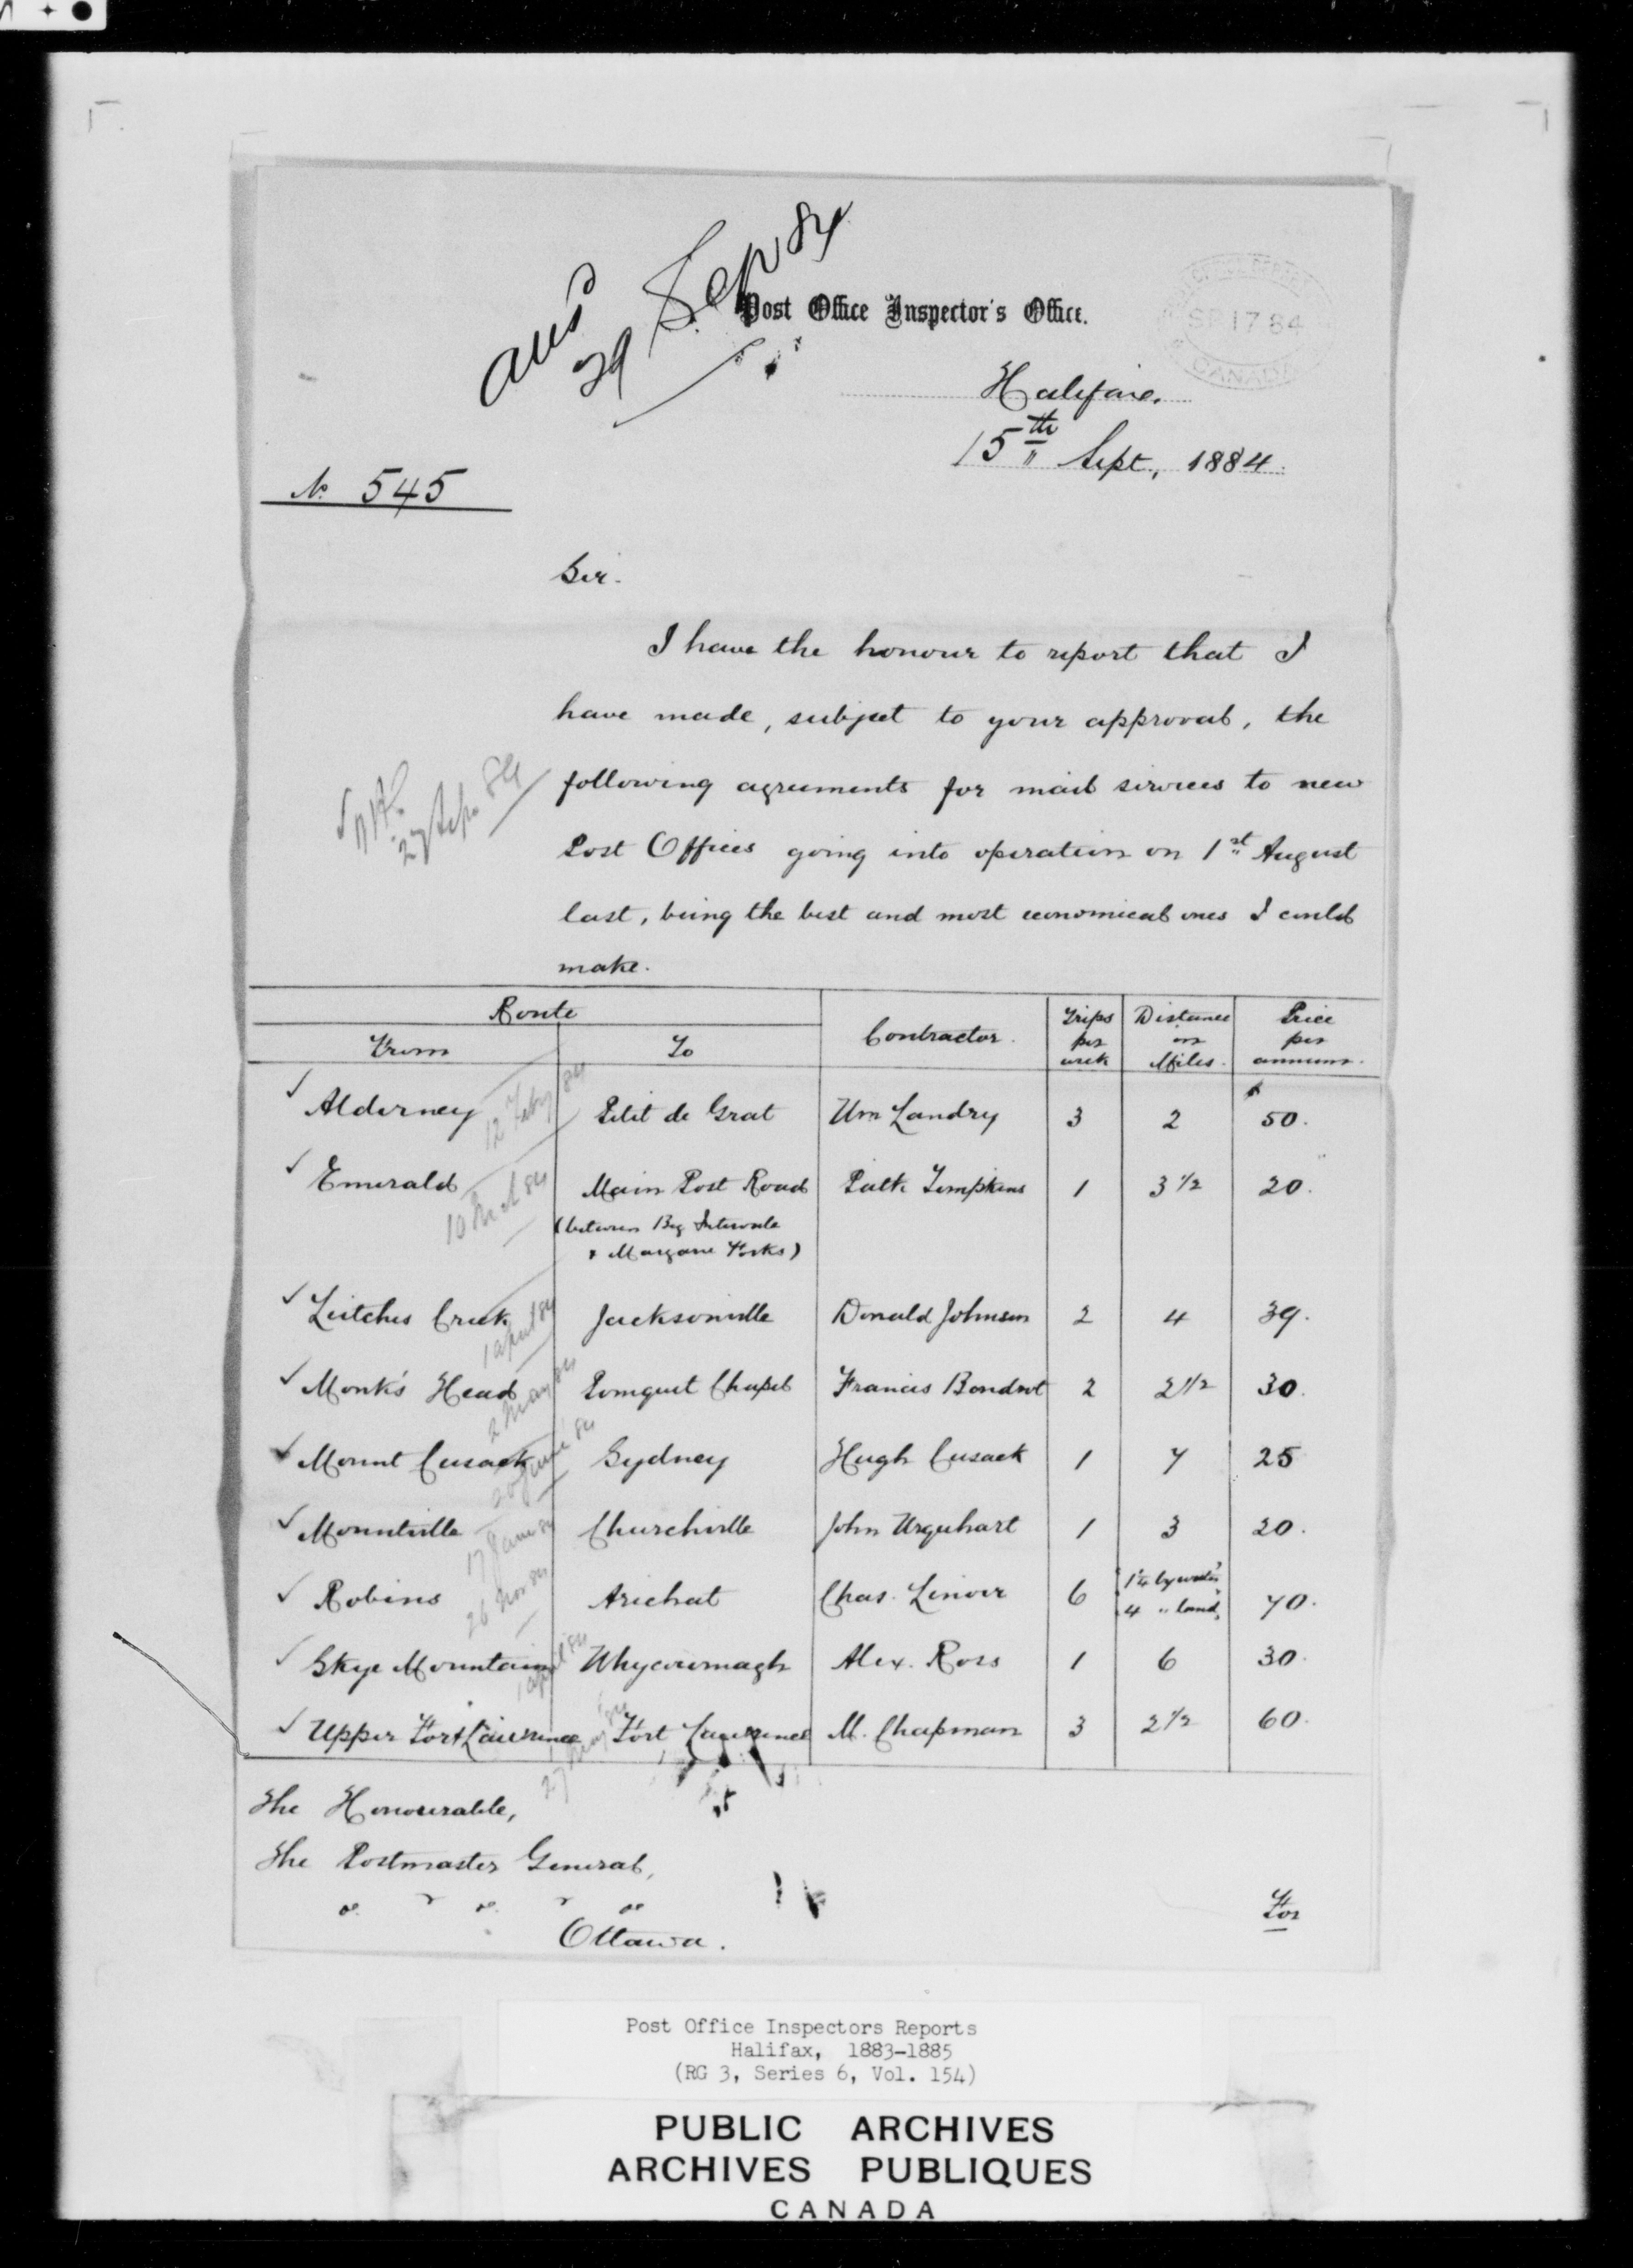 ansd
29 Sep 84
Post Office Inspector's Office.
SP 17 84
CANADA
Halifax,
15th Sept, 1884.
No 545
Sir.
I have the honour to report that I
have made, subject to your approval, the
following agreements for mail services to new
27 Sep 84
Post Offices going into operation on 1st August
last, being the best and most economical ones I could
make.
Route Contractor. Trips per week Distance in Miles. Price per annum.
From To
✓ Alderney 12 Feby 84 Petit de Grat Wm Landry 3 2 $ 50.
✓ Emerald 10 Mch 84 Main Post Road Patk Tompkins 1 3 1/2 20.
(between Big Intervale
& Margaree Forks)
✓ Leitches Creek 1 April 84 Jacksonville Donald Johnson 2 4 39.
✓ Monk's Head 2 May 84 Pomquet Chapel Francis Bondrot 2 2 1/2 30.
✓ Mount Cusack 20 June 84 Sydney Hugh Cusack 1 7 25
✓ Mountville 17 June 84 Churchville John Urquhart 1 3 20.
✓ Robins 26 Nov 84 Arichat Chas. Lenoir 6 1 1/4 by water, 4 " land, 70.
✓ Skye Mountain 1 April 84 Whycocomagh Alex. Ross 1 6 30.
✓ Upper Fort Lawrence 27 May 84 Fort Lawrence M. Chapman 3 2 1/2 60.
The Honourable,
The Postmaster General,
Ottawa.
For
Post Office Inspectors Reports
Halifax, 1883-1885
(RG 3, Series 6, Vol. 154)
PUBLIC ARCHIVES
ARCHIVES PUBLIQUES
CANADA